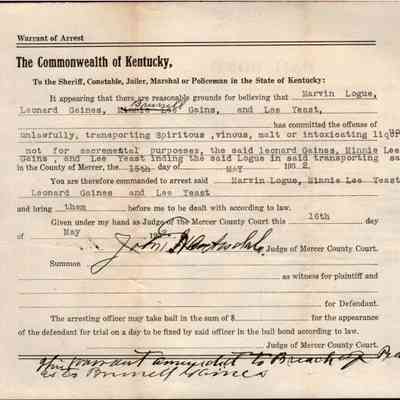 Warrant of Arrest
The Commonwealth of Kentucky,
To the Sheriff, Constable, Jailer, Marshal or Policeman in the State of Kentucky:
It appearing that there are reasonable grounds for believing that Marvin Logue,
Brunell
Leonard Gaines, Minnie Lee Gains, and Lee Yeast,
has committed the offense of
unlawfully, transporting Spiritous ,vinous, malt or intoxicating
not for sacremental purposes, the said leonard Gaines, Minnie Lee
Gains, and Lee Yeast inding the said Logue in said transporting
in the County of Mercer, the 15th day of MAY 19
You are therefore commanded to arrest said Marvin Logue, Minnie Lee Yeast
Leonard Gaines and Lee Yeast
and bring them before me to be dealt with according to law.
Given under my hand as Judge of the Mercer County Court this 16th day
of May 19
John Judge of Mercer County Court.
Summon
as witness for plaintiff and
for Defendant.
The arresting officer may take bail in the sum of $ for the appearance
of the defendant for trial on a day to be fixed by said officer in the bail bond according to law.
Judge of Mercer County Court.
This warrant amended to Breach of
as to Brunell Gaines